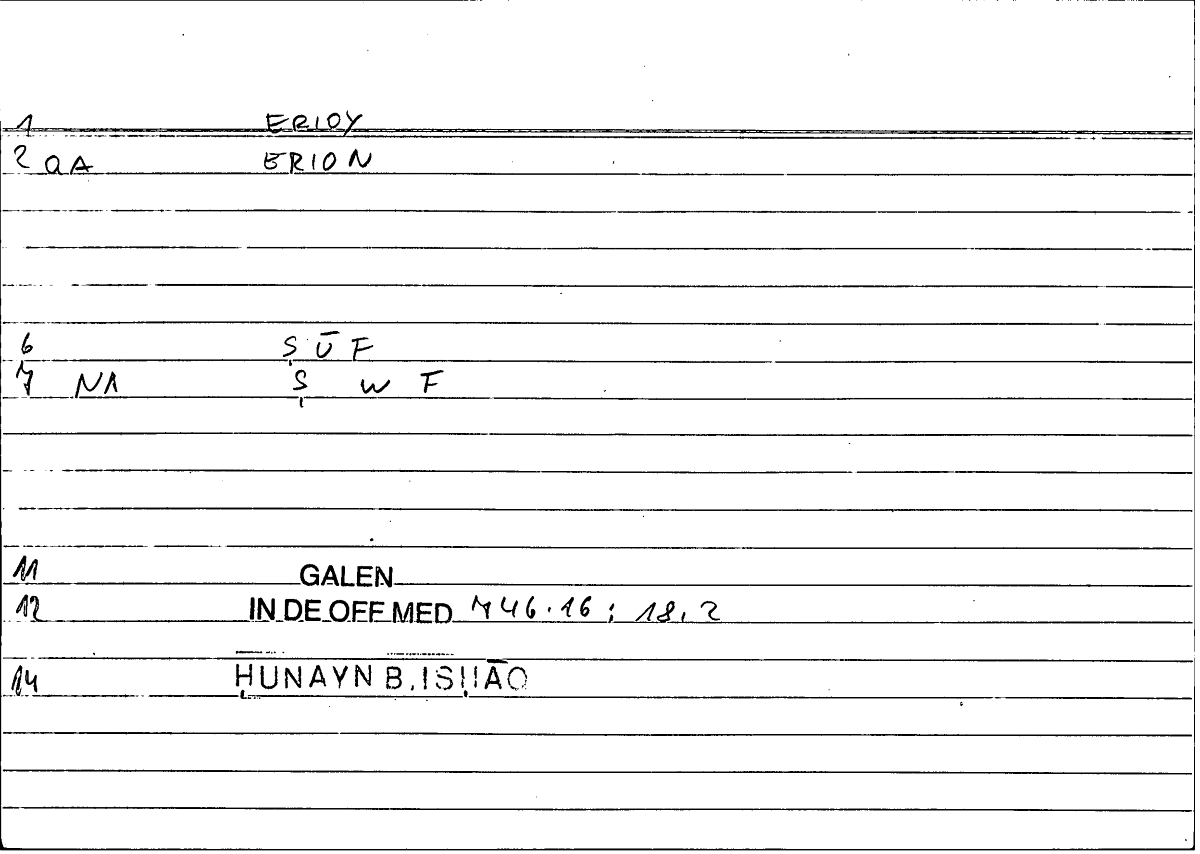 1 ERIOY
2 QA ERION
6 ṢŪF
7 NA Ṣ W F
11 GALEN
12 IN DE OFF MED 746.16; 18,2
14 ḤUNAYN B. ISḤĀQ